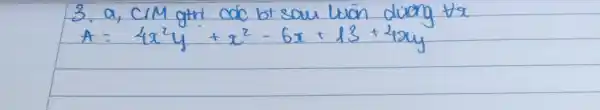 3. a, C/M gtrị các bt sau luôn dương ∀x
A = 4x²y + x² - 6x + 13 + 4xy